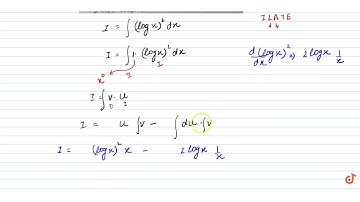 I = ∫ (log x)² dx
I L A T E
I = ∫ 1. (log x)² dx
x⁰ I I
d/dx (log x)² ⇒ 2 log x 1/x
I = ∫ v. u
II I
I = u ∫ v − ∫ du . ∫ v
I = (log x)² x − 2 log x 1/x